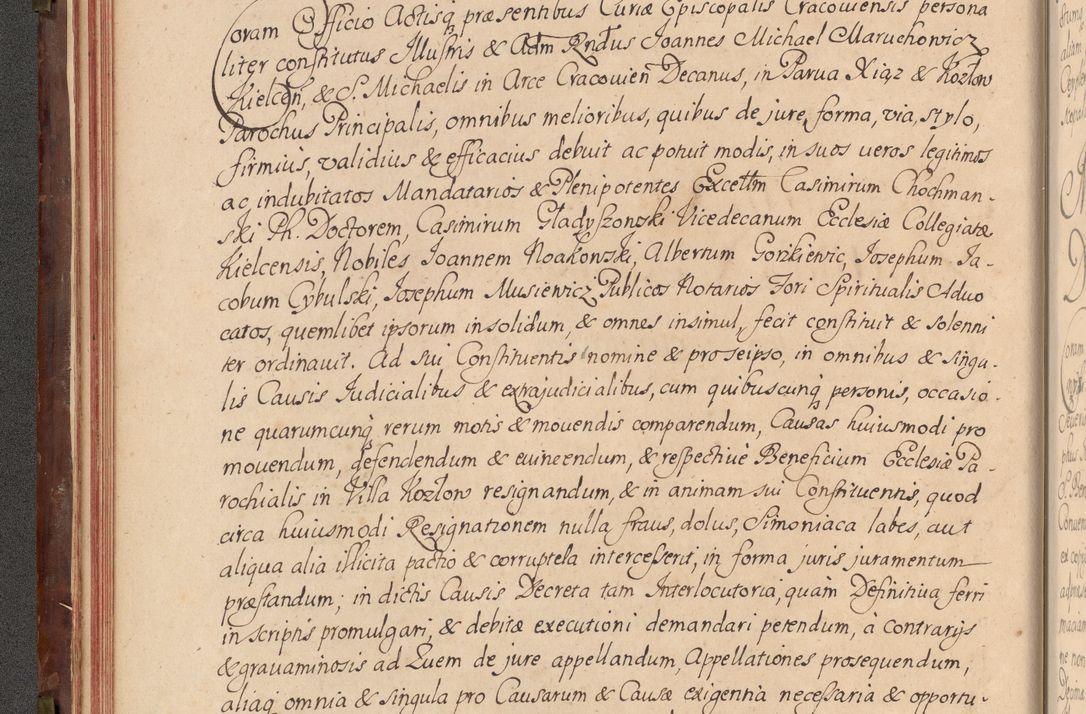 Coram Officio Actisq, præsentibus Curiæ Episcopalis Cracoviensis persona
liter constitutus Illustris & Adm Rndus Joannes Michael Maruchowicz
Kielceñ, & S. Michaelis in Arce Cracovieñ Decanus, in Parva Xiąz & Kozłow
Parochus Principalis, omnibus melioribus, quibus de jure, forma, via, stylo,
firmius, validius & efficacius debuit ac potuit modis, in suos veros legitimos
ac indubitatos Mandatarios & Plenipotentes Excellm Casimirum Chochman-
ski Ph. Doctorem, Casimirum Gładyszonski Vicedecanum Ecclesiæ Collegiatæ
Kielcensis, Nobiles Joannem Noakowski, Albertum Gorzkiewic, Josephum Ja-
cobum Cybulski, Josephum Musiewicz Publicos Notarios Fori Spiritualis Advo
catos, quemlibet ipsorum in solidum, & omnes insimul, fecit constituit & solenni
ter ordinavit. Ad sui Constituentis nomine & pro seipso, in omnibus & singu-
lis Causis Judicialibus & extrajudicialibus, cum quibuscunq, personis, occasio-
ne quarumcunq, rerum motis & movendis comparendum, Causas huiusmodi pro
movendum, defendendum & evineendum, & respective Beneficium Ecclesiæ Pa-
rochialis in Villa Kozłow resignandum, & in animam sui Constituentis, quod
circa huiusmodi Resignationem nulla fraus, dolus, Simoniaca labes, aut
aliqua alia illicita pactio & corruptela intercesserit, in forma juris juramentum
præstandum; in dictis Causis Decreta tam Interlocutoria, quam Definitiva ferri
in scriptis promulgari, & debitæ executioni demandari petendum, a contrarijs
& gravaminosis ad Quem de jure appellandum, Appellationes prosequendum,
aliaq omnia & singula pro Causarum & Causæ exigentia necessaria & opportu-